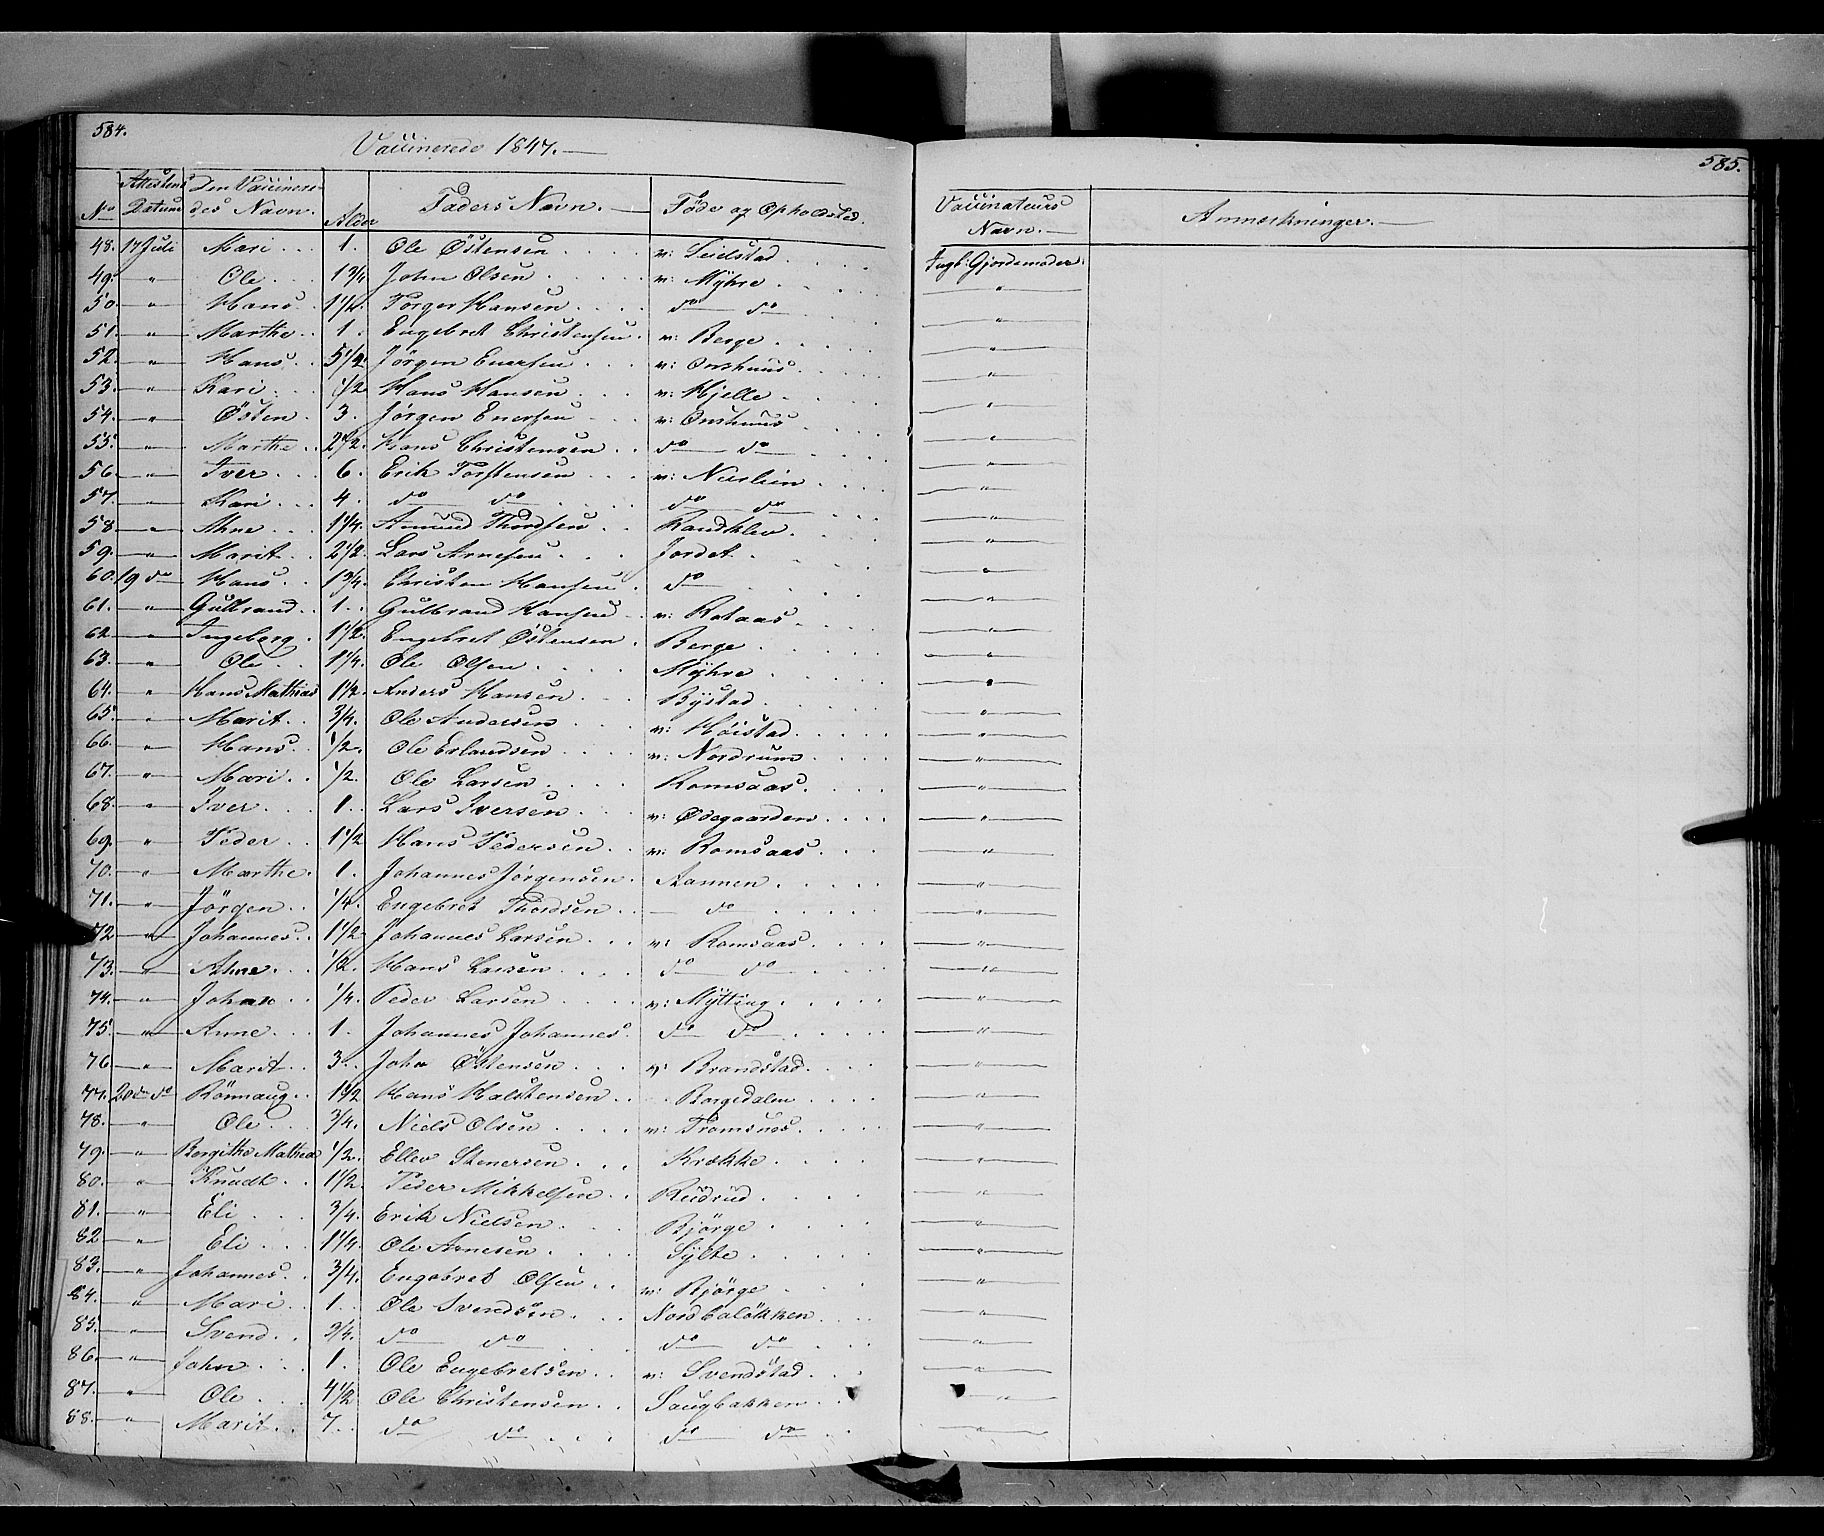 584.
Vaccinerede 1847.
585.
No Attestens Datum Den Vaccineredes Navn. Alder Faders Navn. Føde og Opholdsted. Vaccinateurs Navn. Anmærkninger.
48. 17 Juli Mari 1. Ole Østensen v: Seielstad Ingb: Gjordemoder
49. " Ole 1 3/4 John Olsen v: Myhre "
50. " Hans 1 1/2. Torger Hansen do do "
51. " Marthe 1. Engebret Christensen v: Berge "
52. " Hans 5 1/2. Jørgen Enersen v: Onshuus "
53. " Kari 1/2 Hans Hansen v: Hjelle "
54. " Østen 3. Jørgen Enersen v: Onshuus "
55. " Marthe 2 1/2. Hans Christensen do do "
56. " Iver 6. Erik Torstensen v: "
57. " Kari 4. do do do do "
58 " Ahne 1 1/4. Amund Thordsen Randklev "
59. " Marit 2 1/2. Lars Arnesen Jordet "
60. 19 do Hans 1 3/4. Christen Hansen do "
61. " Gulbrand 1. Gulbrand Hansen v: Rolaas "
62 " Ingeborg 1 1/2. Engebret Østensen Berge "
63. " Ole 1 1/4. Ole Olsen Myhre "
64. " Hans Mathias 1 1/2. Anders Hansen Bystad "
65. " Marit 3/4. Ole Andersen v: Høistad "
66. " Hans 1/2. Ole Erlandsen v: Nordrum "
67. " Mari 1/2. Ole Larsen Romsaas "
68. " Iver 1. Lars Iversen v: Ødegaarden "
69. " Peder 1 1/2 Hans Pedersen v: Romsaas "
70. " Marthe 1. Johannes Jørgensen Aannen "
71. " Jørgen 1/4. Engebret Thordsen do "
72 " Johannes 1 1/2 Johannes Larsen v: Romsaas "
73. " Ahne 1/2. Hans Larsen do do "
74. " Johan 1/4. Peder Larsen v: Mytting "
75. " Anne 1. Johannes Johannes do do "
76 " Marit 3. John Østensen v: Brandstad "
77. 20de do Rønnaug 1 1/2 Hans Halstensen Borgedalen "
78. " Ole 3/4. Niels Olsen v: Tromsnes "
79. " Bergithe Mathea 1/2. Ellev Stenersen Krække "
80. " Knudt 1 1/2. Peder Mikkelsen Rudrud "
81. " Eli 3/4. Erik Nielsen Bjørge "
82 " Eli 1 1/4. Ole Arnesen Sylte "
83. " Johannes 3/4. Engebret Olsen v: Bjørge "
84. " Mari 1. Ole Svendsen Nordbaløkken "
85. " Svend 3/4. do do do do "
86. " John 1. Ole Engebretsen v: Svendstad "
87. " Ole 4 1/2 Ole Christensen Saugbakken "
88. " Marit 7. do do do do "